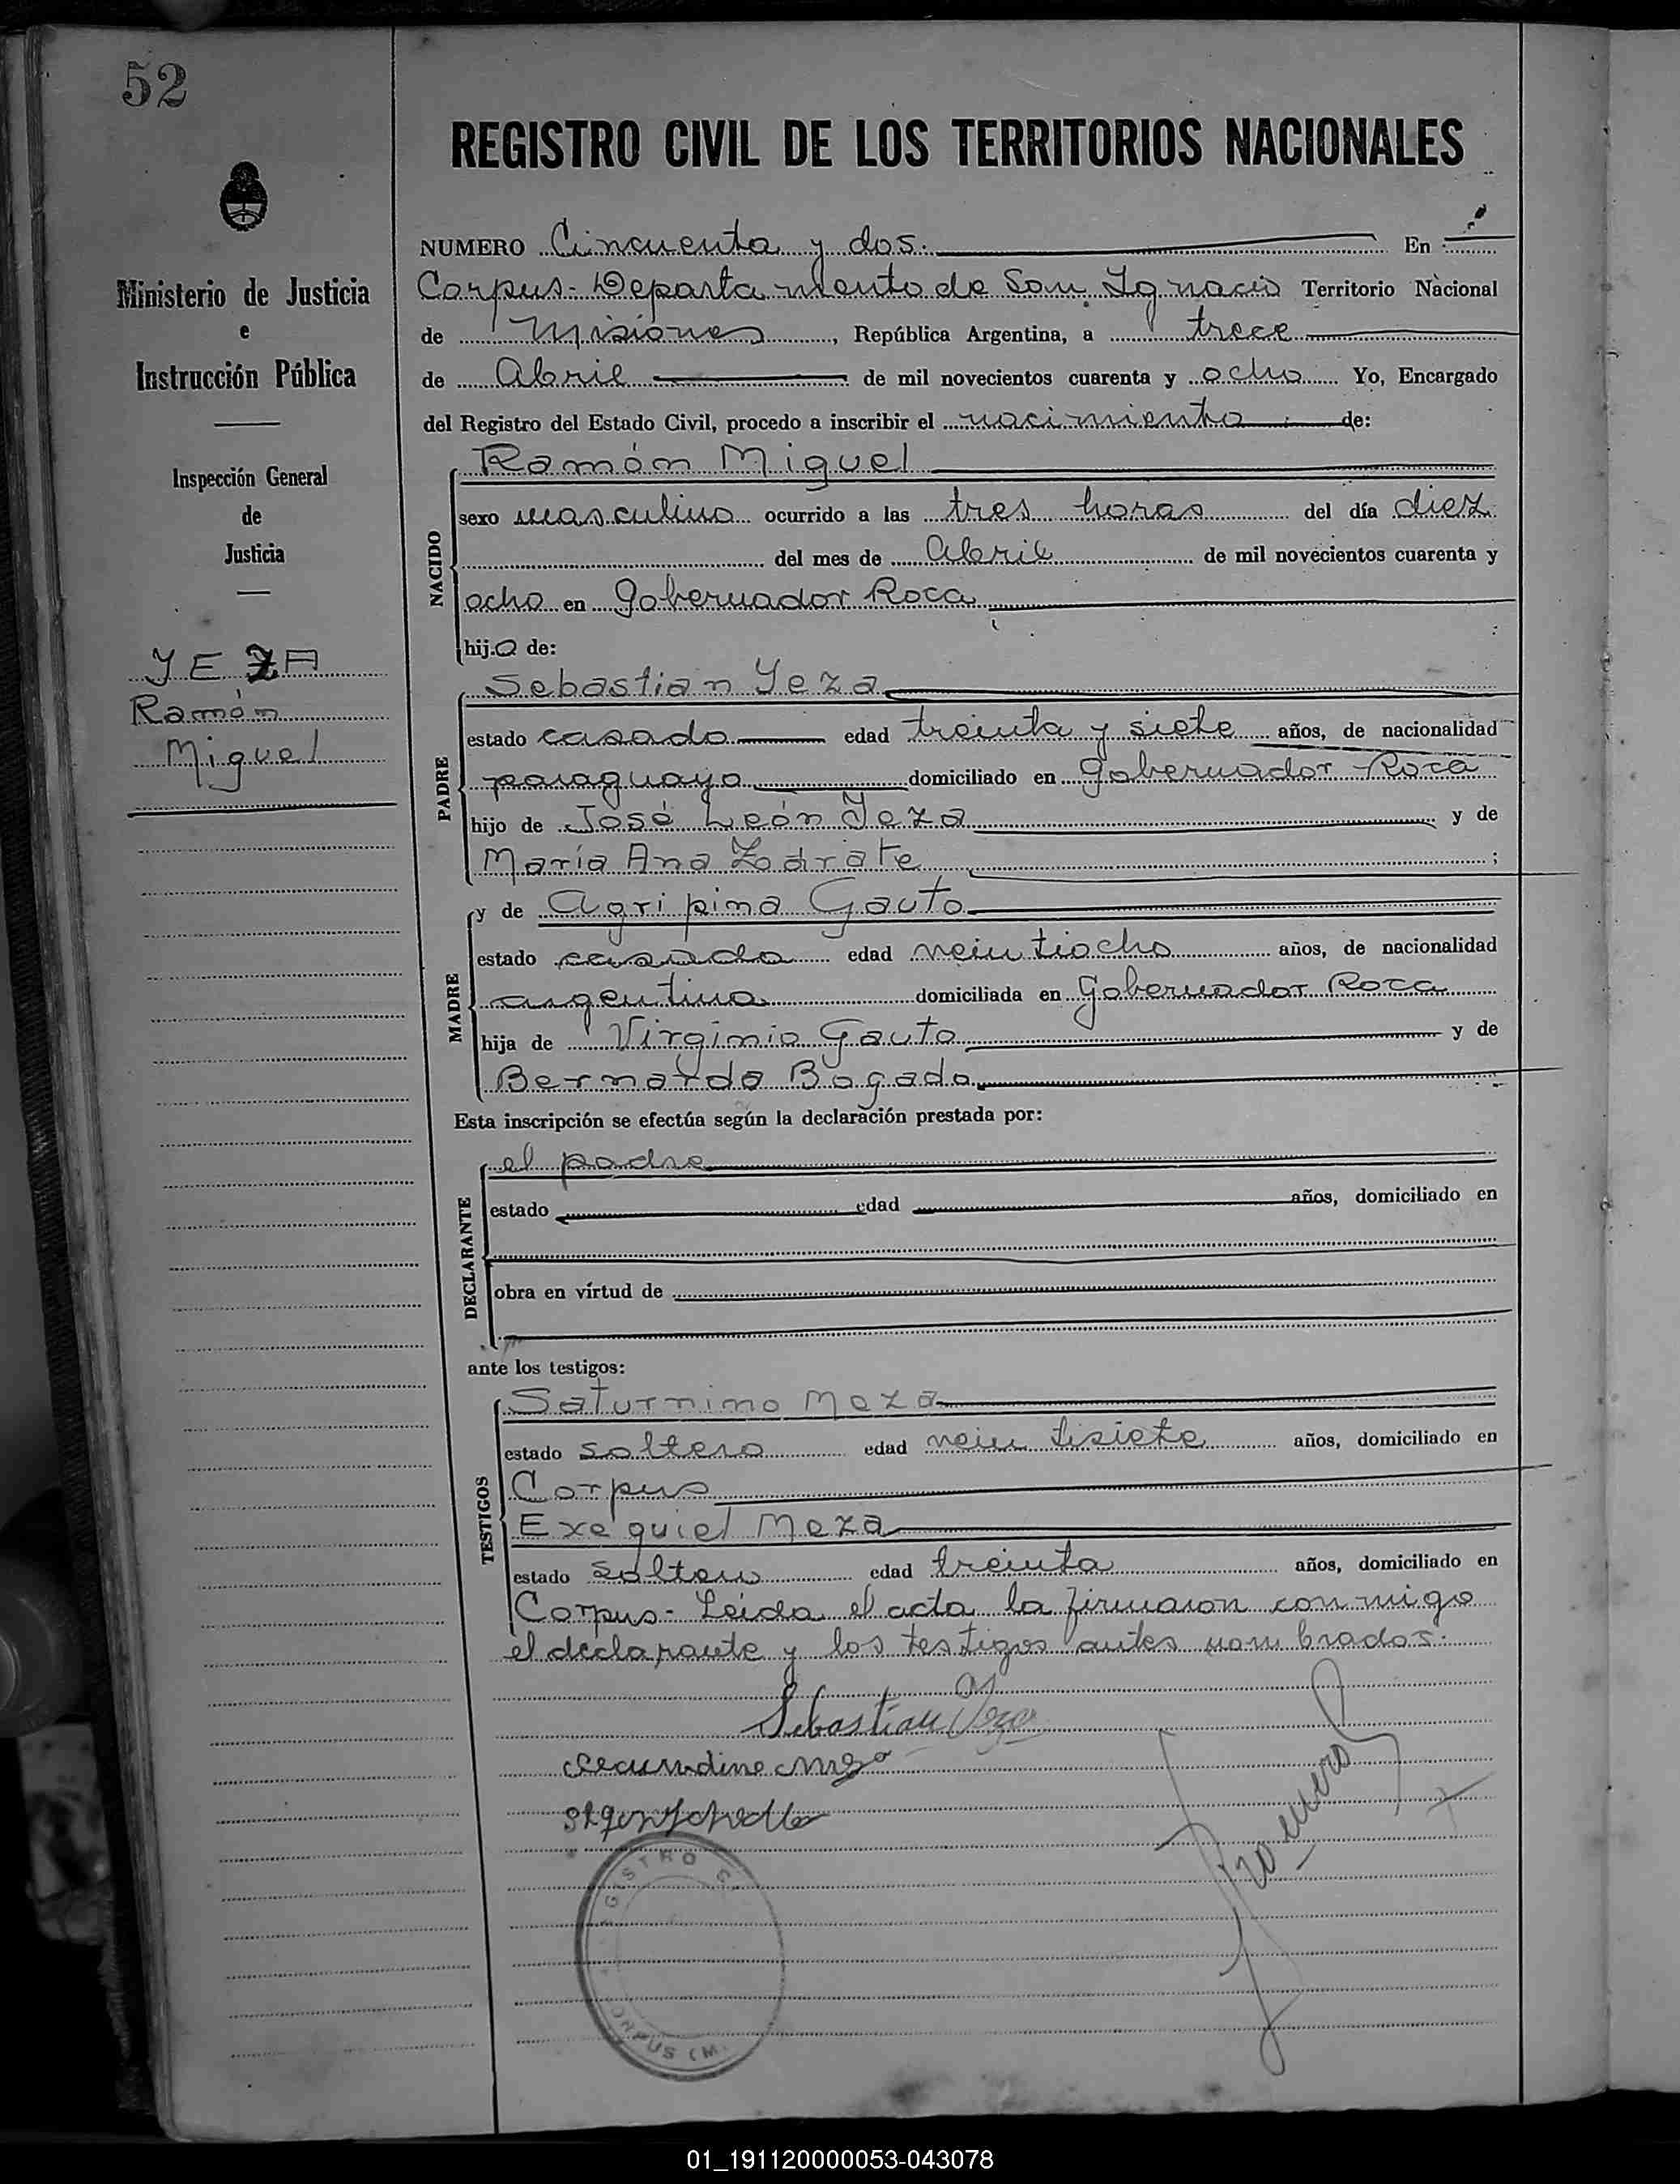 52
REGISTRO CIVIL DE LOS TERRITORIOS NACIONALES
Ministerio de Justicia
e
Instrucción Pública
Inspección General
de
Justicia
YEZA
Ramón
Miguel
NUMERO Cincuenta y dos. En
Corpus - Departamento de San Ignacio Territorio Nacional
de Misiones, República Argentina, a trece
de Abril de mil novecientos cuarenta y ocho Yo, Encargado
del Registro del Estado Civil, procedo a inscribir el nacimiento de:
NACIDO
Ramón Miguel
sexo masculino ocurrido a las tres horas del día diez
del mes de Abril de mil novecientos cuarenta y
ocho en Gobernador Roca
hijo de:
PADRE
Sebastian Yeza
estado casado edad treinta y siete años, de nacionalidad
paraguaya domiciliado en Gobernador Roca
hijo de José León Yeza y de
María Ana Zadrate ;
MADRE
y de Agripina Gauto
estado casada edad veintiocho años, de nacionalidad
argentina domiciliada en Gobernador Roca
hija de Virginio Gauto y de
Bernarda Bogado
Esta inscripción se efectúa según la declaración prestada por:
DECLARANTE
el padre
estado edad años, domiciliado en
obra en virtud de
ante los testigos:
TESTIGOS
Saturnino Meza
estado soltero edad veintisiete años, domiciliado en
Corpus
Exequiel Meza
estado soltero edad treinta años, domiciliado en
Corpus - Leída el acta la firmaron conmigo
el declarante y los testigos antes nombrados.
Sebastian Yeza
REGISTRO C
CORPUS (M.
01_191120000053-043078